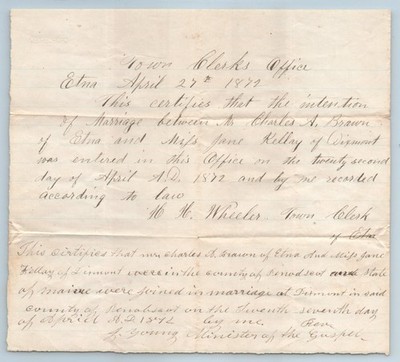 Town Clerks Office
Etna April 27th 1872
This certifies that the intention
of Marriage between Mr Charles A. Brown
of Etna and Miss Jane Kellay of Dixmont
was entered in this Office on the twenty second
day of April A.D. 1872 and by me recorded
according to law
H. H. Wheeler, Town Clerk
of Etna
This certifies that mr charles A. Brown of Etna and Miss Jane
Kellay of Dixmont were in the county of Penobscot and State
of maine were joined in marriage at Dixmont in said
county of Penobscot on the twenty seventh day
of April A.D 1872 by me, Rev
J. Young Minister of the Gospel.